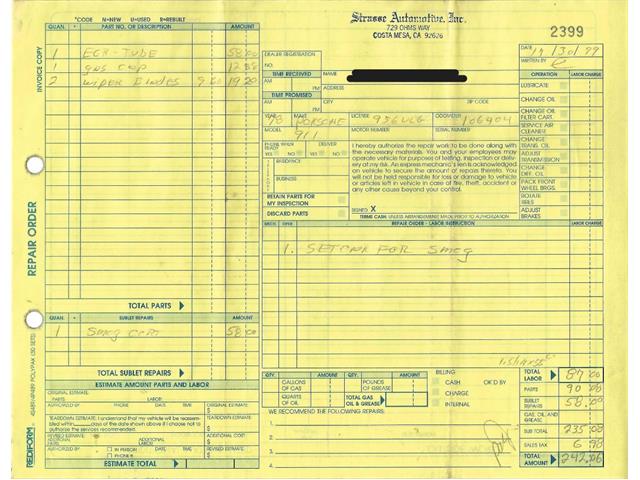 *CODE N=NEW U=USED R=REBUILT
QUAN. * PART NO. OR DESCRIPTION
INVOICE COPY
1 EGR-TUBE 58.00
1 gas cap
2 wiper blades 9.60 19.20
Strasse Automotive, Inc.
729 OHMS WAY
COSTA MESA, CA 92626
2399
DATE
WRITTEN BY
DEALER REGISTRATION NO.
TIME RECEIVED AM PM
NAME
ADDRESS
TIME PROMISED AM PM
CITY ZIP CODE
YEAR MAKE LICENSE ODOMETER
78 PORSCHE 956VLG 106404
MODEL MOTOR NUMBER SERIAL NUMBER
911
PHONE WHEN READY YES NO DELIVER YES NO
RESIDENCE
BUSINESS
PHONE
RETAIN PARTS FOR MY INSPECTION
DISCARD PARTS
I hereby authorize the repair work to be done along with
the necessary materials. You and your employees may
operate vehicle for purposes of testing, inspection or delivery
at my risk. An express mechanic's lien is acknowledged
on vehicle to secure the amount of repairs thereto. You
will not be held responsible for loss or damage to vehicle
or articles left in vehicle in case of fire, theft, accident or
any other cause beyond your control.
SIGNED X
TERMS CASH UNLESS ARRANGEMENTS MADE PRIOR TO AUTHORIZATION
OPERATION LABOR CHARGE
LUBRICATE
CHANGE OIL
CHANGE OIL FILTER CART.
SERVICE AIR CLEANER
CHANGE TRANS. OIL
ADJUST TRANSMISSION
CHANGE DIFF. OIL
PACK FRONT WHEEL BRGS.
ROTATE TIRES
ADJUST BRAKES
INSTR. OPER. REPAIR ORDER - LABOR INSTRUCTION LABOR CHARGE
1. FOR SMOG
REPAIR ORDER
TOTAL PARTS
QUAN. SUBLET REPAIRS
1 Smog Cert 58.00
TOTAL SUBLET REPAIRS
ESTIMATE AMOUNT PARTS AND LABOR
ORIGINAL ESTIMATE: PARTS LABOR
AUTHORIZED BY PHONE DATE TIME ORIGINAL ESTIMATE $
TEARDOWN ESTIMATE: I understand that my vehicle will be reassembled within days of the date shown above if I choose not to authorize the services recommended.
TEARDOWN ESTIMATE $
REVISED ESTIMATE: ADDITIONAL PARTS ADDITIONAL LABOR
ADDITIONAL COST $
AUTHORIZED BY IN PERSON PHONE # DATE TIME REVISED ESTIMATE $
ESTIMATE TOTAL
REDIFORM
4S489/4P489 POLYPAK (50 SETS)
QTY. AMOUNT QTY. AMOUNT
GALLONS OF GAS
POUNDS OF GREASE
QUARTS OF OIL
TOTAL GAS OIL & GREASE
BILLING
CASH OK'D BY
CHARGE
INTERNAL
WE RECOMMEND THE FOLLOWING REPAIRS:
1.
2.
3.
4.
TOTAL LABOR 87.00
PARTS 90.00
SUBLET REPAIRS 58.00
GAS, OIL AND GREASE
SUB TOTAL 235.00
SALES TAX 6.98
TOTAL AMOUNT